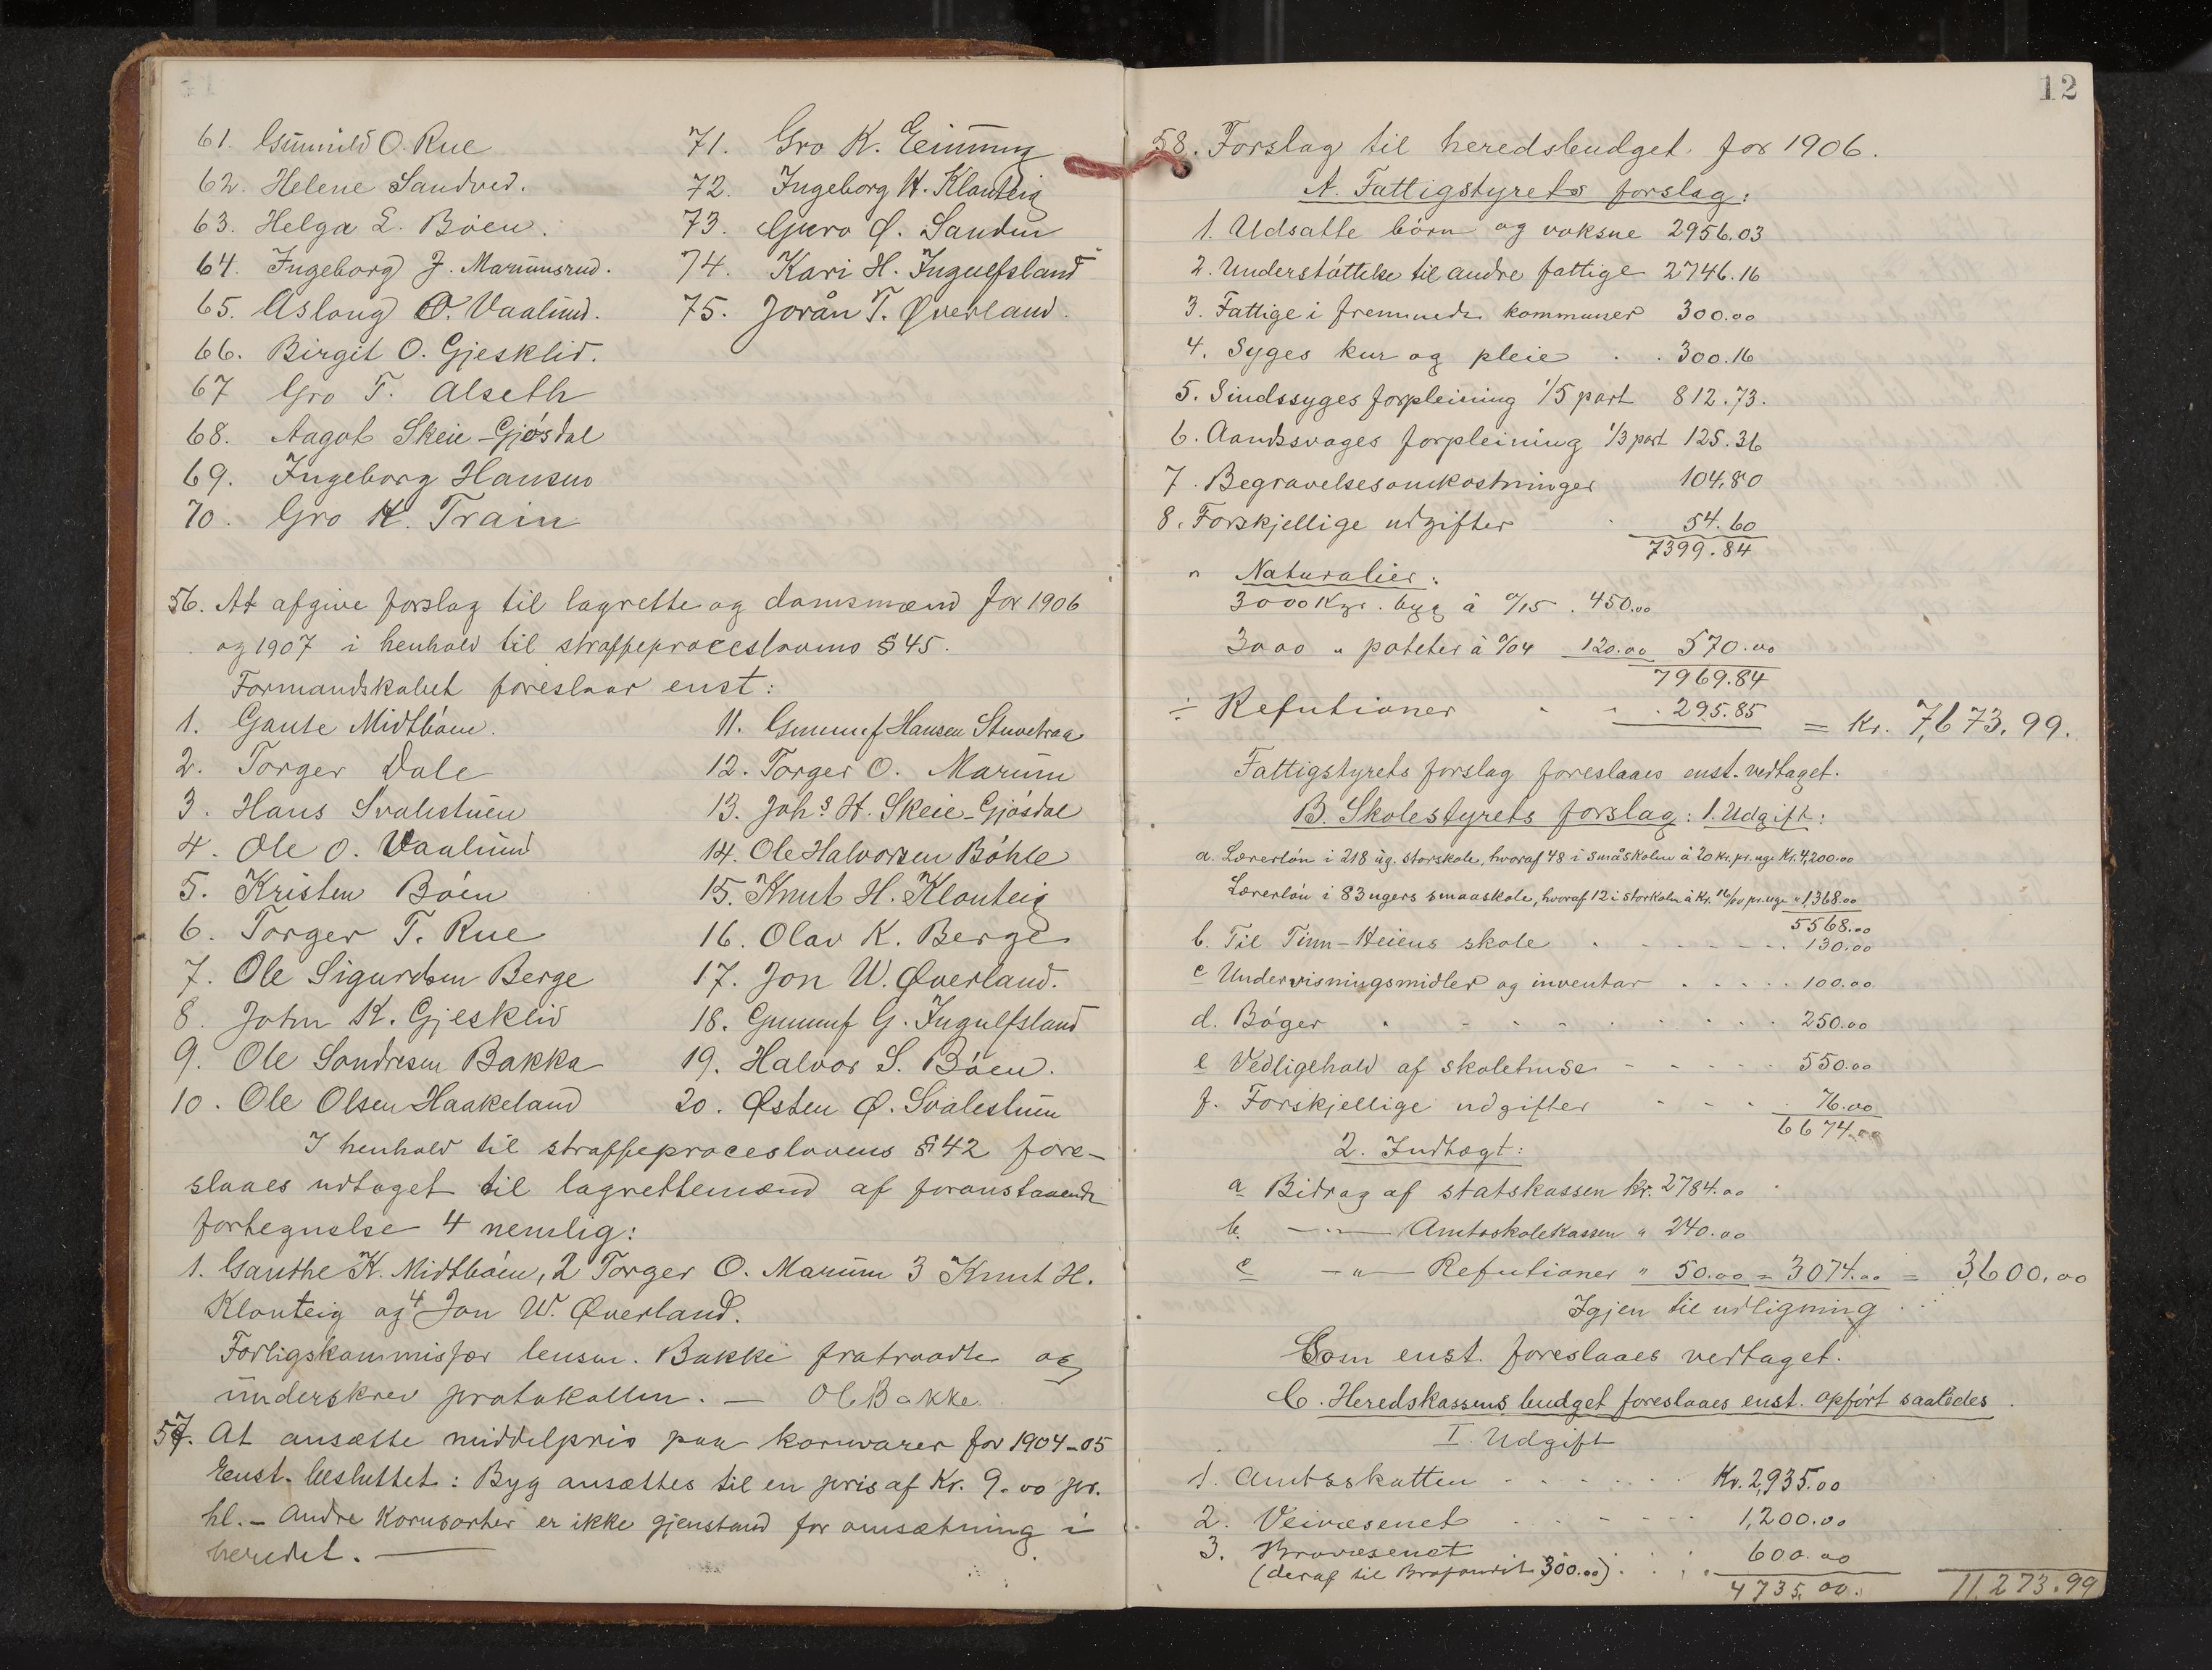 61. Gunnild O. Rue
62. Helene Sandved.
63. Helga L. Böen.
64. Ingeborg J. Marumsrud.
65. Aslaug O. Vaalund.
66. Birgit O. Gjesklid.
67 Gro T. Alseth
68. Aagot Skeie-Gjösdal
69. Ingeborg Hansen
70. Gro K. Træin
71. Gro K. Einung
72. Ingeborg H. Klonteig
73. Guro Ø. Sanden
74. Kari H. Ingulfsland
75. Jorån T. Øverland.
56. At afgive forslag til lagrette og domsmænd for 1906
og 1907 i henhold til straffeproceslovens § 45.
Formandskabet foreslaar enst:
1. Gaute Midtböen.
2. Torger Dale
3. Hans Svalestuen
4. Ole O. Vaalund
5. Kristen Böen
6. Torger T. Rue
7. Ole Sigurdsen Berge
8. John K. Gjesklid
9. Ole Sondresen Bakka
10. Ole Olsen Haakeland
11. Gunnuf Hansen Stuvetraa
12. Torger O. Marum
13. Johs. H. Skeie-Gjösdal
14. Ole Halvorsen Böhle
15. Knut H. Klonteig
16. Olav K. Berge
17. Jon W. Øverland.
18. Gunnuf G. Ingulfsland
19. Halvor S. Böen.
20. Østen Ø. Svalestuen
I henhold til straffeproceslovens § 42 fore-
slaaes udtaget til lagrettemænd af foranstaaende
fortegnelse 4 nemlig:
1. Gauthe K. Midtböen, 2 Torger O. Marum 3 Knut H.
Klonteig og 4 Jon W. Øverland.
Forligskommisær lensm. Bakke fratraadte og
underskrev protokollen. — Ol. Bakke.
57. At ansætte middelpris paa kornvarer for 1904-05
Enst. besluttet: Byg ansættes til en pris af Kr. 9.00 pr.
hl. - Andre Kornsorter er ikke gjenstand for omsætning i
heredet. —
12
58. Forslag til heredsbudget for 1906.
A. Fattigstyrets forslag:
1. Udsatte börn og voksne 2956.03
2. Understöttelse til andre fattige 2746.16
3. Fattige i fremmede kommuner 300.00
4. Syges kur og pleie . . 300.16
5. Sindssyges forpleining 1/5 part 812.73.
6. Aandssvages forpleining 1/3 part 125.36
7. Begravelsesomkostninger 104.80
8. Forskjellige udgifter . 54.60
7399.84
" Naturalier:
3000 Kgr. byg à 0/15 . 450.00
3000 " poteter à 0/04 120.00 570.00
7969.84
÷ Refutioner . . . 295.85 = Kr. 7,673.99.
Fattigstyrets forslag foreslaaes enst. vedtaget.
B. Skolestyrets forslag: 1. Udgift:
a. Lærerlön i 218 ug. storskole, hvoraf 48 i småskolen à 20 kr. pr. uge Kr. 4,200.00
Lærerlön i 83 ugers smaaskole, hvoraf 12 i storkolen à Kr. 16/00 pr. uge " 1,368.00
5568.00
b. Til Tinn-Heiens skole . - - - - - . . 130.00
c Undervisningsmidler og inventar . . . . . 100.00
d. Böger . - - - . . . . . 250.00
e Vedligehold af skolehuse - - - - . . 550.00
f. Forskjellige udgifter - - - . 76.00
6674.00
2. Indtægt:
a Bidrag af statskassen Kr. 2784.00
b. —"— Amtsskolekassen " 240.00
c —"— Refutioner " 50.00 = 3074.00 = 3,600.00
Igjen til udligning . . .
Som enst. foreslaaes vedtaget.
C. Heredskassens budget foreslaaes enst. opfört saaledes.
I. Udgift
1. Amtsskatten - - - - - . Kr. 2,935.00
2. Veivæsenet - - - - - 1,200.00
3. Brovæsenet . . . . 600.00
(deraf til Brofondet 300.00) . . . . 4735.00. 11,273.99